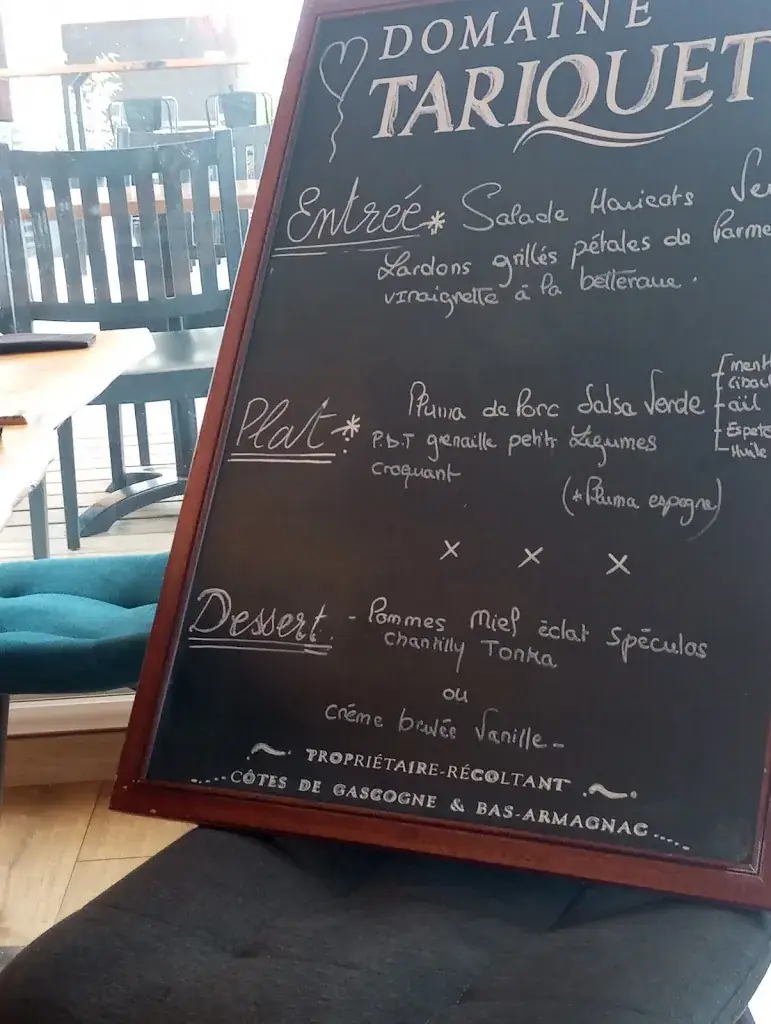 DOMAINE
TARIQUET
Entrée * Salade Haricots Ver
Lardons grillés pétales de Parme
vinaigrette à la betterave.
Plat * Pluma de Porc Salsa Verde
menth
ciboul
ail
Espele
Huile
P.D.T grenaille petits Légumes
croquant
(*Pluma espagne)
x x x
Dessert - Pommes Miel éclat Spéculos
Chantilly Tonka
ou
crème brulée Vanille -
PROPRIÉTAIRE-RÉCOLTANT
CÔTES DE GASCOGNE & BAS-ARMAGNAC